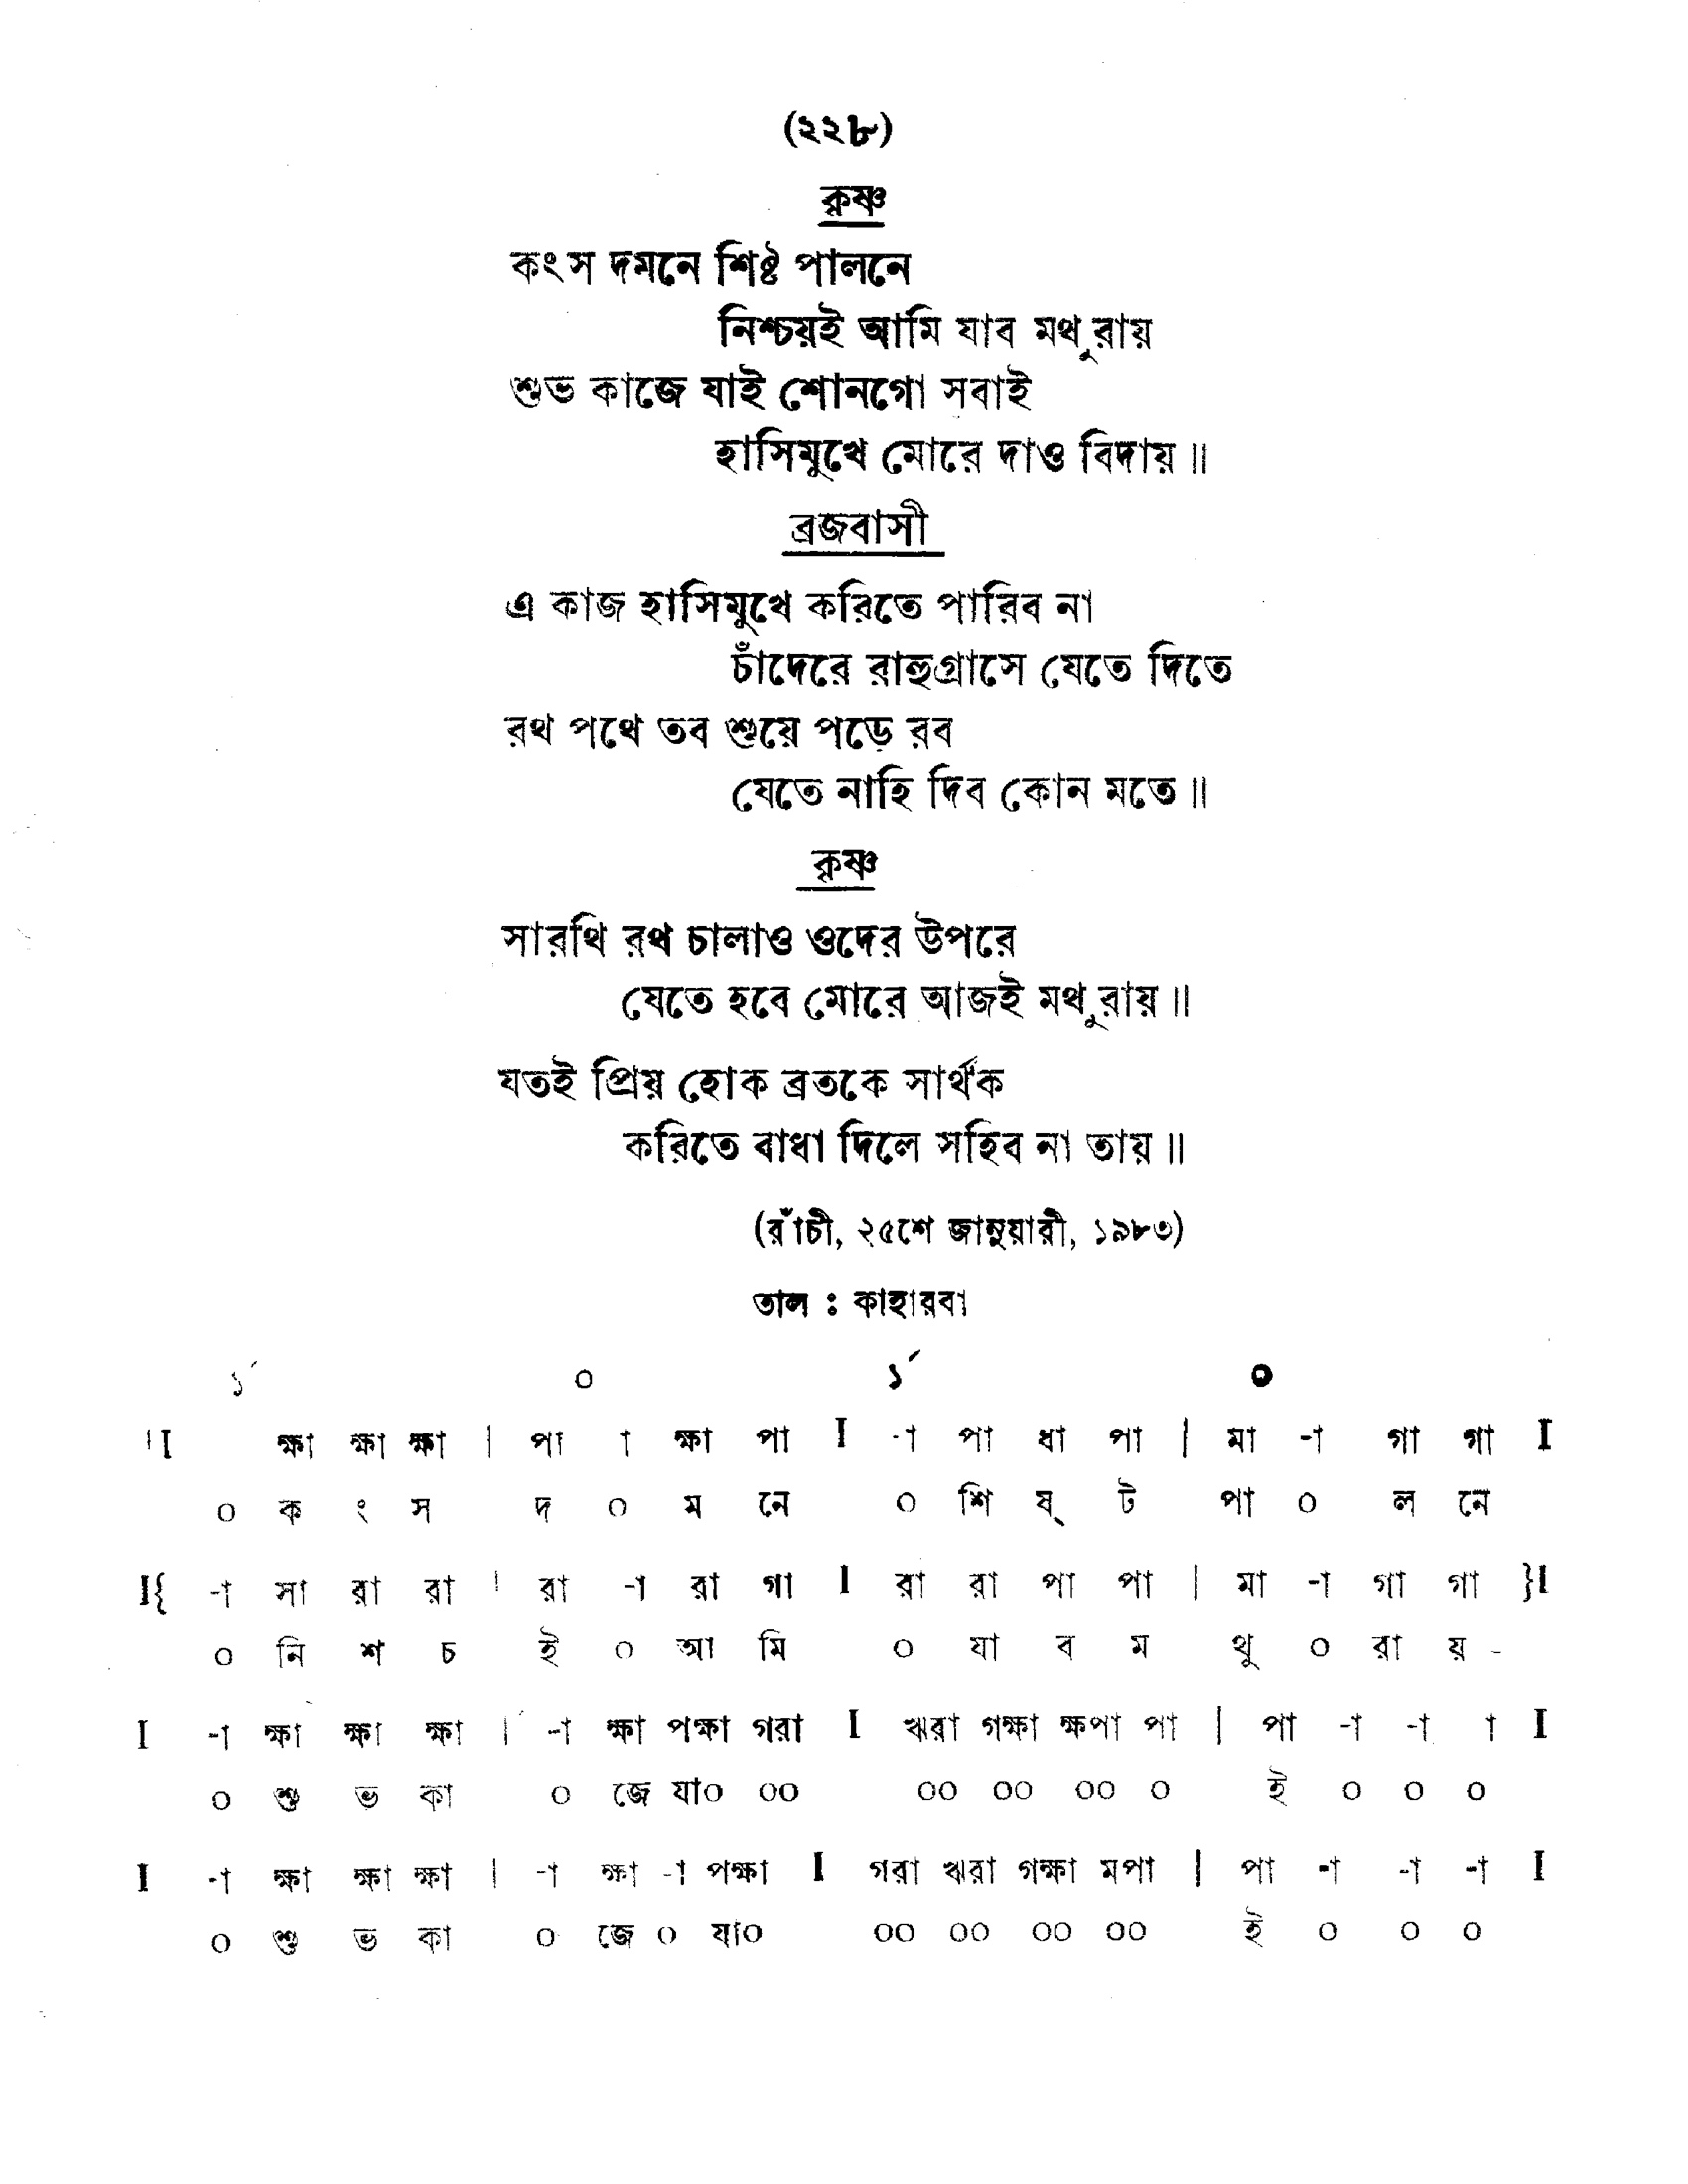 (২২৮)
কৃষ্ণ
কংস দমনে শিষ্ট পালনে
নিশ্চয়ই আমি যাব মথুরায়
শুভ কাজে যাই শোনগো সবাই
হাসিমুখে মোরে দাও বিদায় ॥
ব্রজবাসী
এ কাজ হাসিমুখে করিতে পারিব না
চাঁদেরে রাহুগ্রাসে যেতে দিতে
রথ পথে তব শুয়ে পড়ে রব
যেতে নাহি দিব কোন মতে ॥
কৃষ্ণ
সারথি রথ চালাও ওদের উপরে
যেতে হবে মোরে আজই মথুরায় ॥
যতই প্রিয় হোক ব্রতকে সার্থক
করিতে বাধা দিলে সহিব না তায় ॥
(রাঁচী, ২৫শে জানুয়ারী, ১৯৮৩)
তাল ঃ কাহারবা
১´ ০ ১´ ০
।I ক্ষা ক্ষা ক্ষা | পা া ক্ষা পা I -া পা ধা পা | মা -া গা গা I
০ ক ং স দ ০ ম নে ০ শি ষ্ ট পা ০ ল নে
I{ -া সা রা রা | রা -া রা গা I রা রা পা পা | মা -া গা গা }I
০ নি শ চ ই ০ আ মি ০ যা ব ম থু ০ রা য় -
I -া ক্ষা ক্ষা ক্ষা | -া ক্ষা পক্ষা গরা I ঋরা গক্ষা ক্ষপা পা | পা -া -া া I
০ শু ভ কা ০ জে যা০ ০০ ০০ ০০ ০০ ০ ই ০ ০ ০
I -া ক্ষা ক্ষা ক্ষা | -া ক্ষা -া পক্ষা I গরা ঋরা গক্ষা মপা | পা -া -া -া I
০ শু ভ কা ০ জে ০ যা০ ০০ ০০ ০০ ০০ ই ০ ০ ০